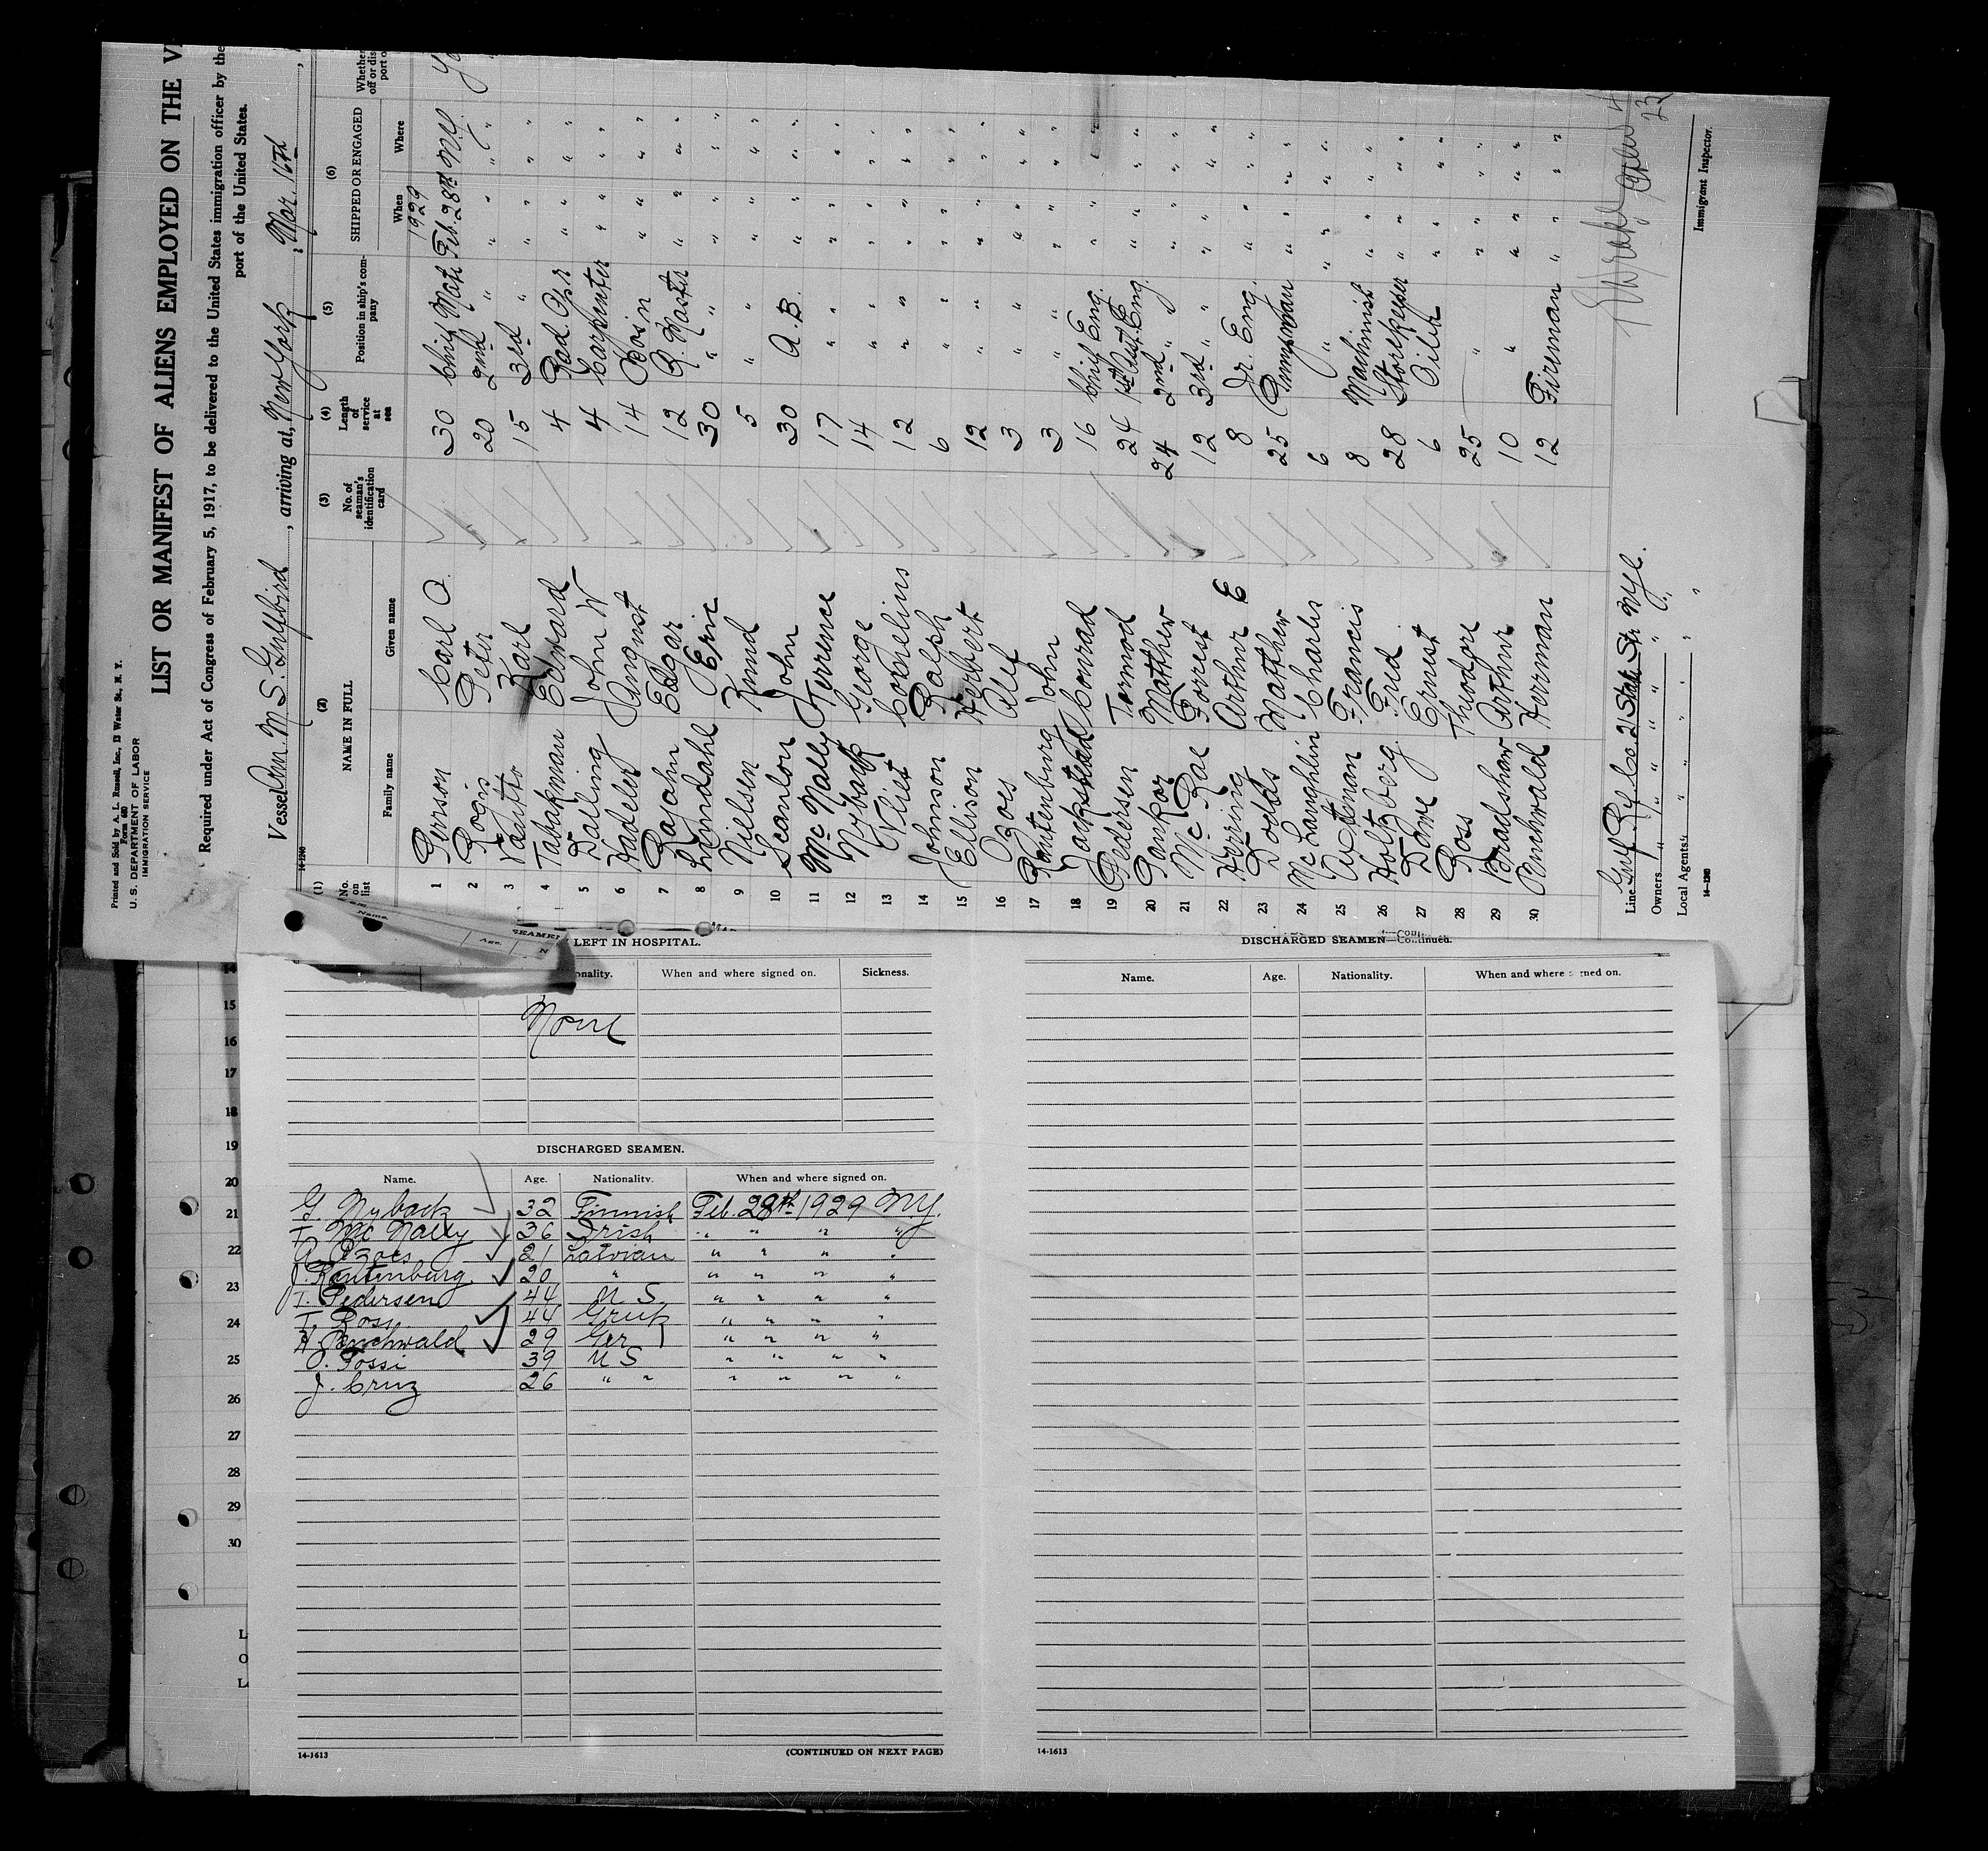 Printed and Sold by A. L. Russell, Inc., 13 Water St., N. Y.
Form 680
U. S. DEPARTMENT OF LABOR
IMMIGRATION SERVICE
LIST OR MANIFEST OF ALIENS EMPLOYED ON THE
Required under Act of Congress of February 5, 1917, to be delivered to the United States immigration officer by the
port of the United States.
Vessel Am. M. S. Gulfbird, arriving at, New York, Mar. 16th
14-1240
(1) (2) (3) (4) (5) (6)
No. on list
NAME IN FULL
Family name Given name
No. of seaman's identification card
Length of service at sea
Position in ship's company
SHIPPED OR ENGAGED
When Where
Whether
off or dis
port o
1929
1 Person Carl O. 30 Chief Mate Feb. 28th N.Y.
2 Rogis Peter 20 2nd " " "
3 Karl 15 3rd " " " "
4 Tabakman Edward 4 Rad. Opr " " "
5 Daling John W 4 Carpenter " " "
6 Hadeler August 14 Bosin " " "
7 Rajahn Edgar 12 Q. Master " " "
8 Lundahl Eric 30 " " " " "
9 Nielsen Knud 5 " " " "
10 Scanlon John 30 A.B. " " "
11 Mc Nally Terrence 17 " " " "
12 Nyback George 14 " " " "
13 Vliet Cornelius 12 " " " "
14 Johnson Ralph 6 " " " "
15 Ellison Herbert 12 " " " "
16 Ozols Alef 3 " " " "
17 Rautenburg John 3 " " " "
18 Conrad 16 Chief Eng. " " "
19 Pedersen Tormod 24 1st Asst. Eng. " " "
20 Pankor Matthew 24 2nd " " " " "
21 Mc Rae Forrest 12 3rd " " " " "
22 Herring Arthur E 8 Jr. Eng. " " "
23 Dodds Matthew 25 Pumpman " " "
24 Mc Laughlin Charles 6 " " " "
25 Francis 8 Machinist " " "
26 Holtzberg Fred 28 Storekeeper " " "
27 Dawe Ernest 6 Oiler " " "
28 Ross Thodore 25 " " " "
29 Bradshaw Arthur 10 " " " "
30 Buchwald Herman 12 Fireman " " "
Line Gulf Rf. Co 21 State St. N.Y.C.
Owners " " " " " "
Local Agents " " " " " "
14-1240
Immigrant Inspector.
LEFT IN HOSPITAL.
When and where signed on. Sickness.
None
DISCHARGED SEAMEN.
Name. Age. Nationality. When and where signed on.
G. Nyback 32 Finnish Feb. 28th 1929 N.Y.
T. Mc Nally 36 Irish " " " "
A. Ozols 21 Latvian " " " "
J. Rautenburg 20 " " " " "
T. Pedersen 44 U S. " " " "
T. Ross 44 Greek " " " "
H. Buchwald 29 Ger " " " "
O. Tossi 39 U S " " " "
J. Cruz 26 " " " " " "
14-1613 (CONTINUED ON NEXT PAGE)
DISCHARGED SEAMEN—Continued.
Name. Age. Nationality. When and where signed on.
14-1613
14
15
16
17
18
19
20
21
22
23
24
25
26
27
28
29
30